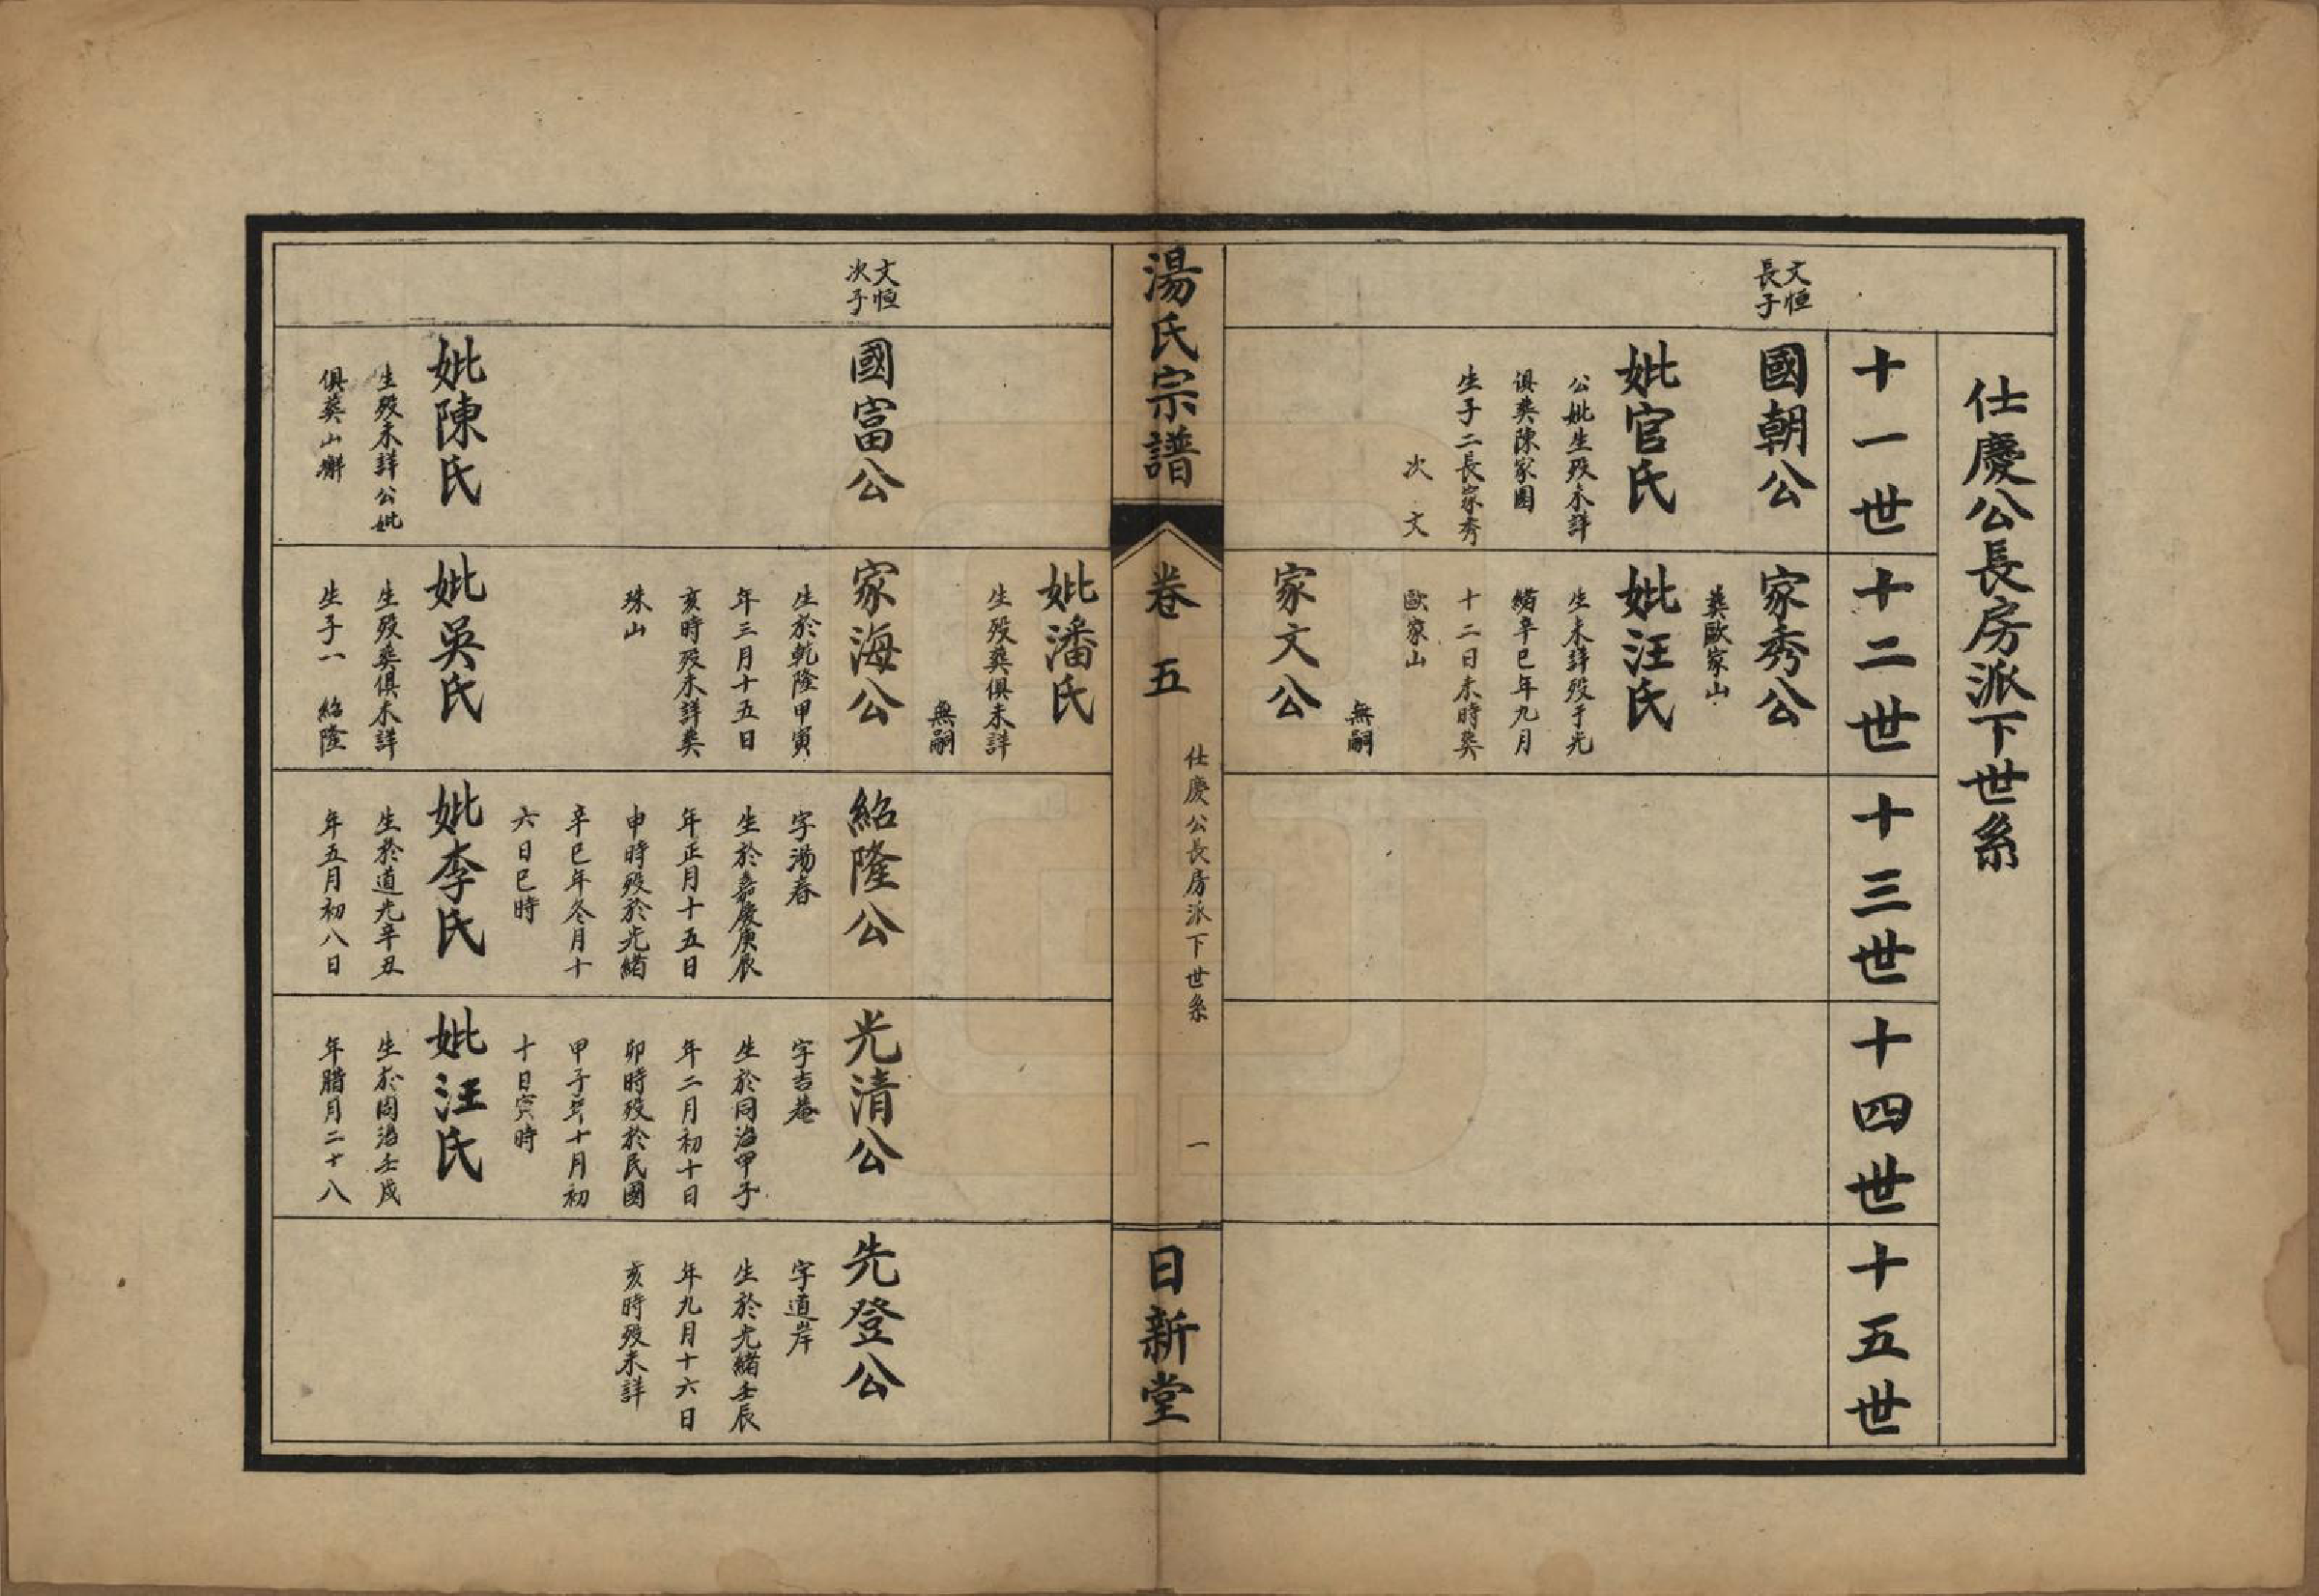 仕慶公長房派下世系
十一世
十二世
十三世
十四世
十五世
文恒
長子
國朝公
妣官氏
公妣生歿未詳
俱葬陳家園
生子二長家秀
次文
家秀公
葬歐家山
妣汪氏
生未詳歿于光
緒辛巳年九月
十二日未時葬
歐家山
無嗣
家文公
湯氏宗譜
卷五
仕慶公長房派下世系
一
日新堂
妣潘氏
生歿葬俱未詳
無嗣
文恒
次子
國富公
妣陳氏
生歿未詳公妣
俱葬山
家海公
生於乾隆甲寅
年三月十五日
亥時歿未詳葬
珠山
妣吳氏
生歿葬俱未詳
生子一 紹隆
紹隆公
字湯春
生於嘉慶庚辰
年正月十五日
申時歿於光緒
辛巳年冬月十
六日巳時
妣李氏
生於道光辛丑
年五月初八日
光清公
字吉菴
生於同治甲子
年二月初十日
卯時歿於民國
甲子年十月初
十日寅時
妣汪氏
生於同治壬戌
年腊月二十八
先登公
字道岸
生於光緒壬辰
年九月十六日
亥時歿未詳